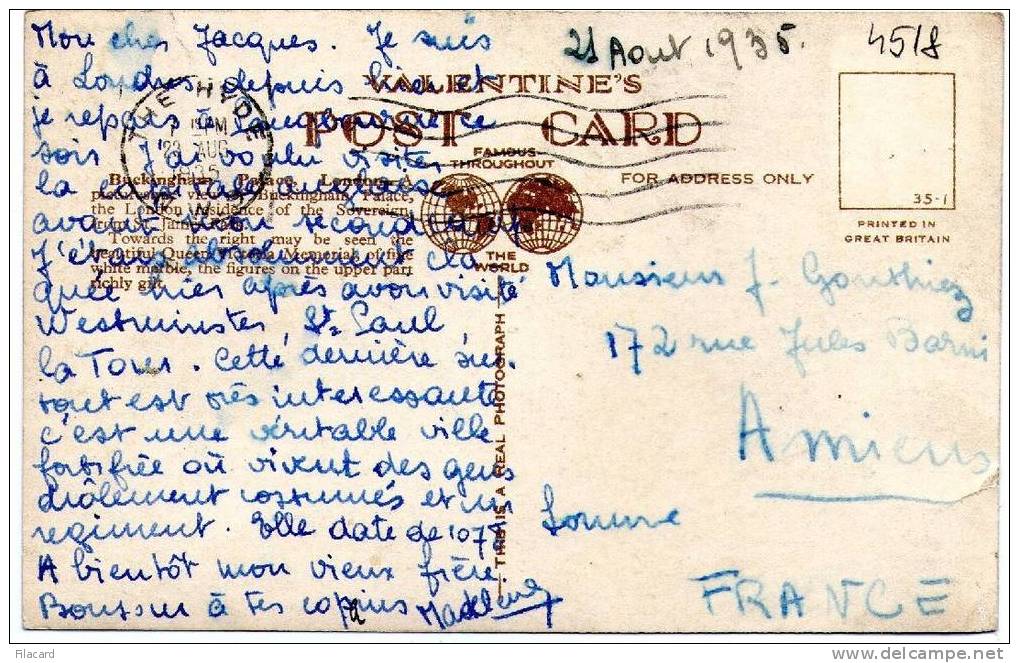 Mon cher Jacques. Je suis
à Londres depuis hier et
je repars à ce
soir J'ai voulu visiter
la capitale anglaise
avant mon second
J'étais absolument cla
quée hier après avoir visité
Westminster, St Paul,
la Tour. Cette dernière sur-
tout est très interessante
c'est une véritable ville
fortifiée où vivent des gens
drôlement costumés et un
regiment. Elle date de 1078
A bientôt mon vieux frère.
Bonjour à tes copins
Ta Madeleine
21 Aout 1935.
4518
VALENTINE'S
POST CARD
FAMOUS THROUGHOUT
THE WORLD
FOR ADDRESS ONLY
35-1
PRINTED IN
GREAT BRITAIN
HYDE
AM
23 AUG
Buckingham Palace, London. A
picturesque view of Buckingham Palace,
the London residence of the Sovereign
from St. James' Park.
Towards the right may be seen the
beautiful Queen Victoria Memorial, of fine
white marble, the figures on the upper part
richly gilt.
THIS IS A REAL PHOTOGRAPH
Monsieur J. Gonthier
172 rue Jules Barni
Amiens
Somme
FRANCE
Filacard - delcampe.net